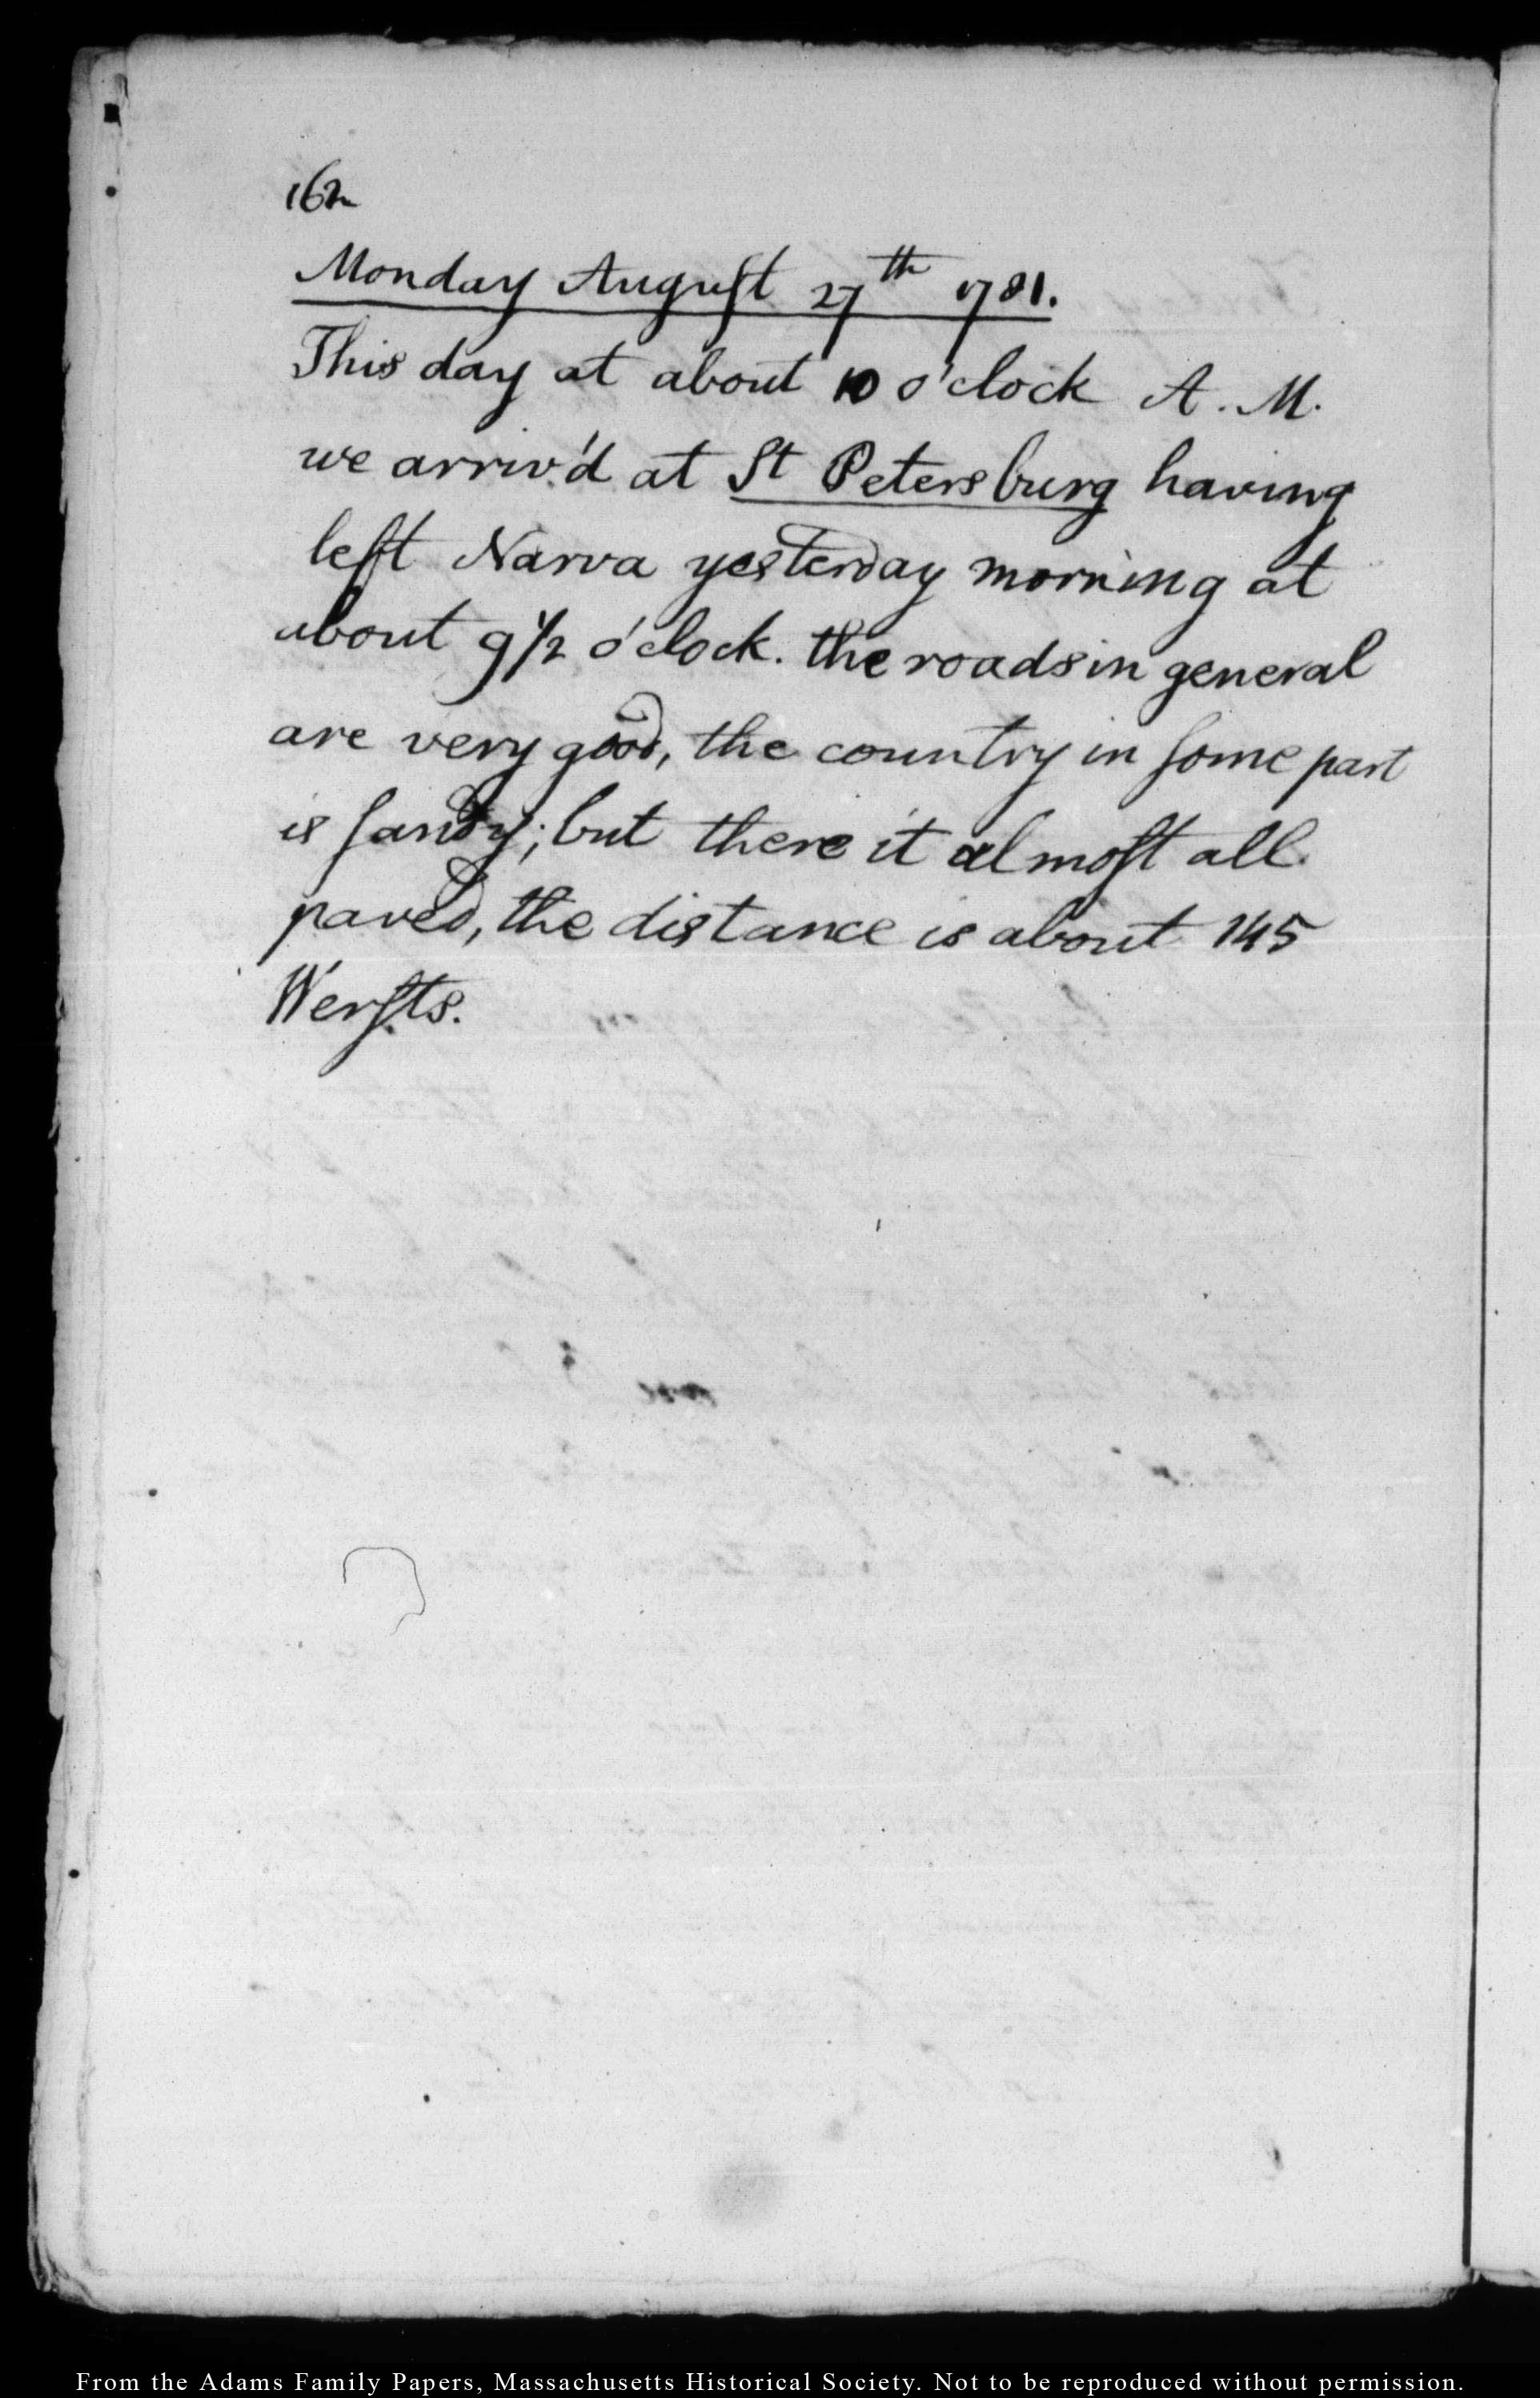 162
Monday August 27th 1781.
This day at about 10 o'clock A. M.
we arriv'd at St Petersburg having
left Narva yesterday morning at
about 9 1/2 o'clock. the roads in general
are very good, the country in some part
is sandy; but there it almost all
paved, the distance is about 145
Wersts.
From the Adams Family Papers, Massachusetts Historical Society. Not to be reproduced without permission.